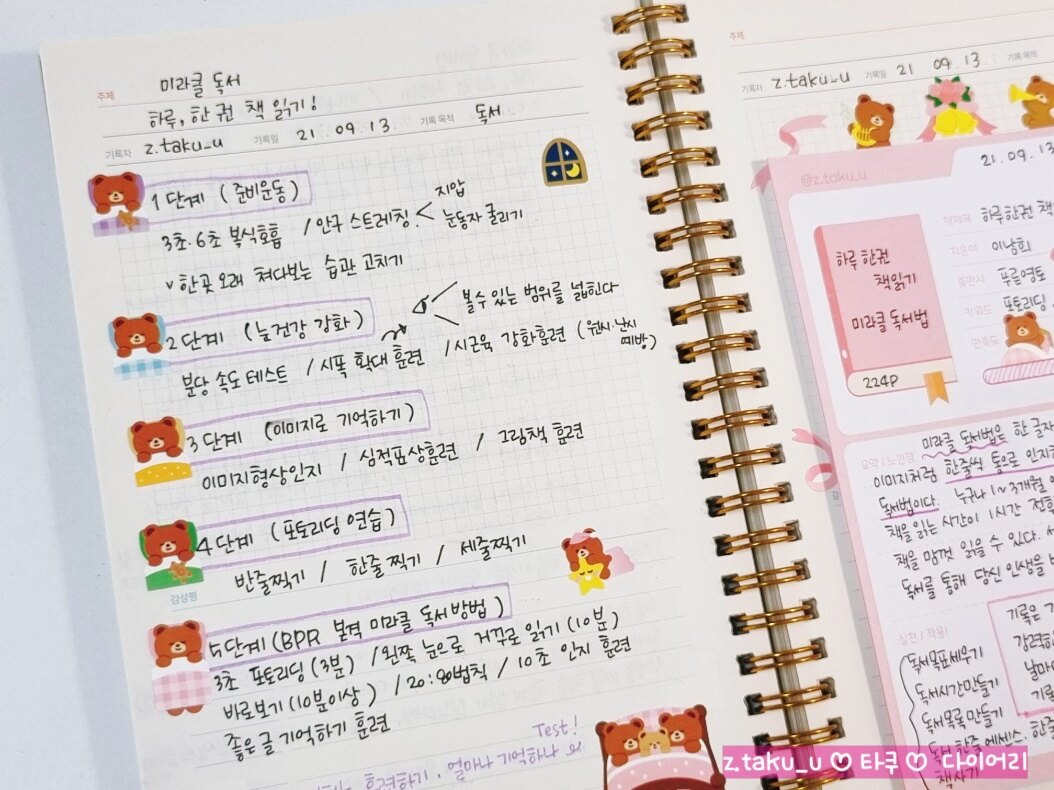 주제
미라클 독서
하루, 한 권 책 읽기!
기록자 z.taku_u 기록일 21. 09. 13. 기록 목적 독서
1단계 (준비운동)
3초·6초 복식호흡 / 안구 스트레칭 < 지압
눈동자 굴리기
v 한곳 오래 쳐다보는 습관 고치기
2단계 (눈건강 강화)
볼 수 있는 범위를 넓힌다
분당 속도 테스트 / 시폭 확대 훈련 / 시근육 강화훈련 (원시·난시 예방)
3단계 (이미지로 기억하기)
이미지형상인지 / 심적표상훈련 / 그림책 훈련
4단계 (포토리딩 연습)
반줄찍기 / 한줄 찍기 / 세줄찍기
감상평
5단계 (BPR 본격 미라클 독서방법)
3초 포토리딩 (3분) / 왼쪽 눈으로 거꾸로 읽기 (10분)
바로보기 (10분이상) / 20:80법칙 / 10초 인지 훈련
좋은글 기억하기 훈련
Test!
훈련하기 · 얼마나 기억하나
주제
기록자 z.taku_u 기록일 21. 09. 13. 기록 목적
@z.taku_u
21. 09. 13
하루한권
책읽기
미라클 독서법
224P
책제목 하루한권 책
지은이 이남희
출판사 푸른영토
키워드 포토리딩
만족도
요약 | 느낀점 미라클 독서법은 한 글자
이미지처럼 한줄씩 통으로 인지
독서법이다. 누구나 1~3개월
책을 읽는 시간이 1시간
책을 맘껏 읽을 수 있다.
독서를 통해 당신 인생을
실천 | 적용
독서목표세우기
독서시간만들기
독서목록 만들기
독서 한줄 에센스.
책사기
기록은
강력하
날마
기록
z.taku_u ♡ 타쿠 ♡ 다이어리